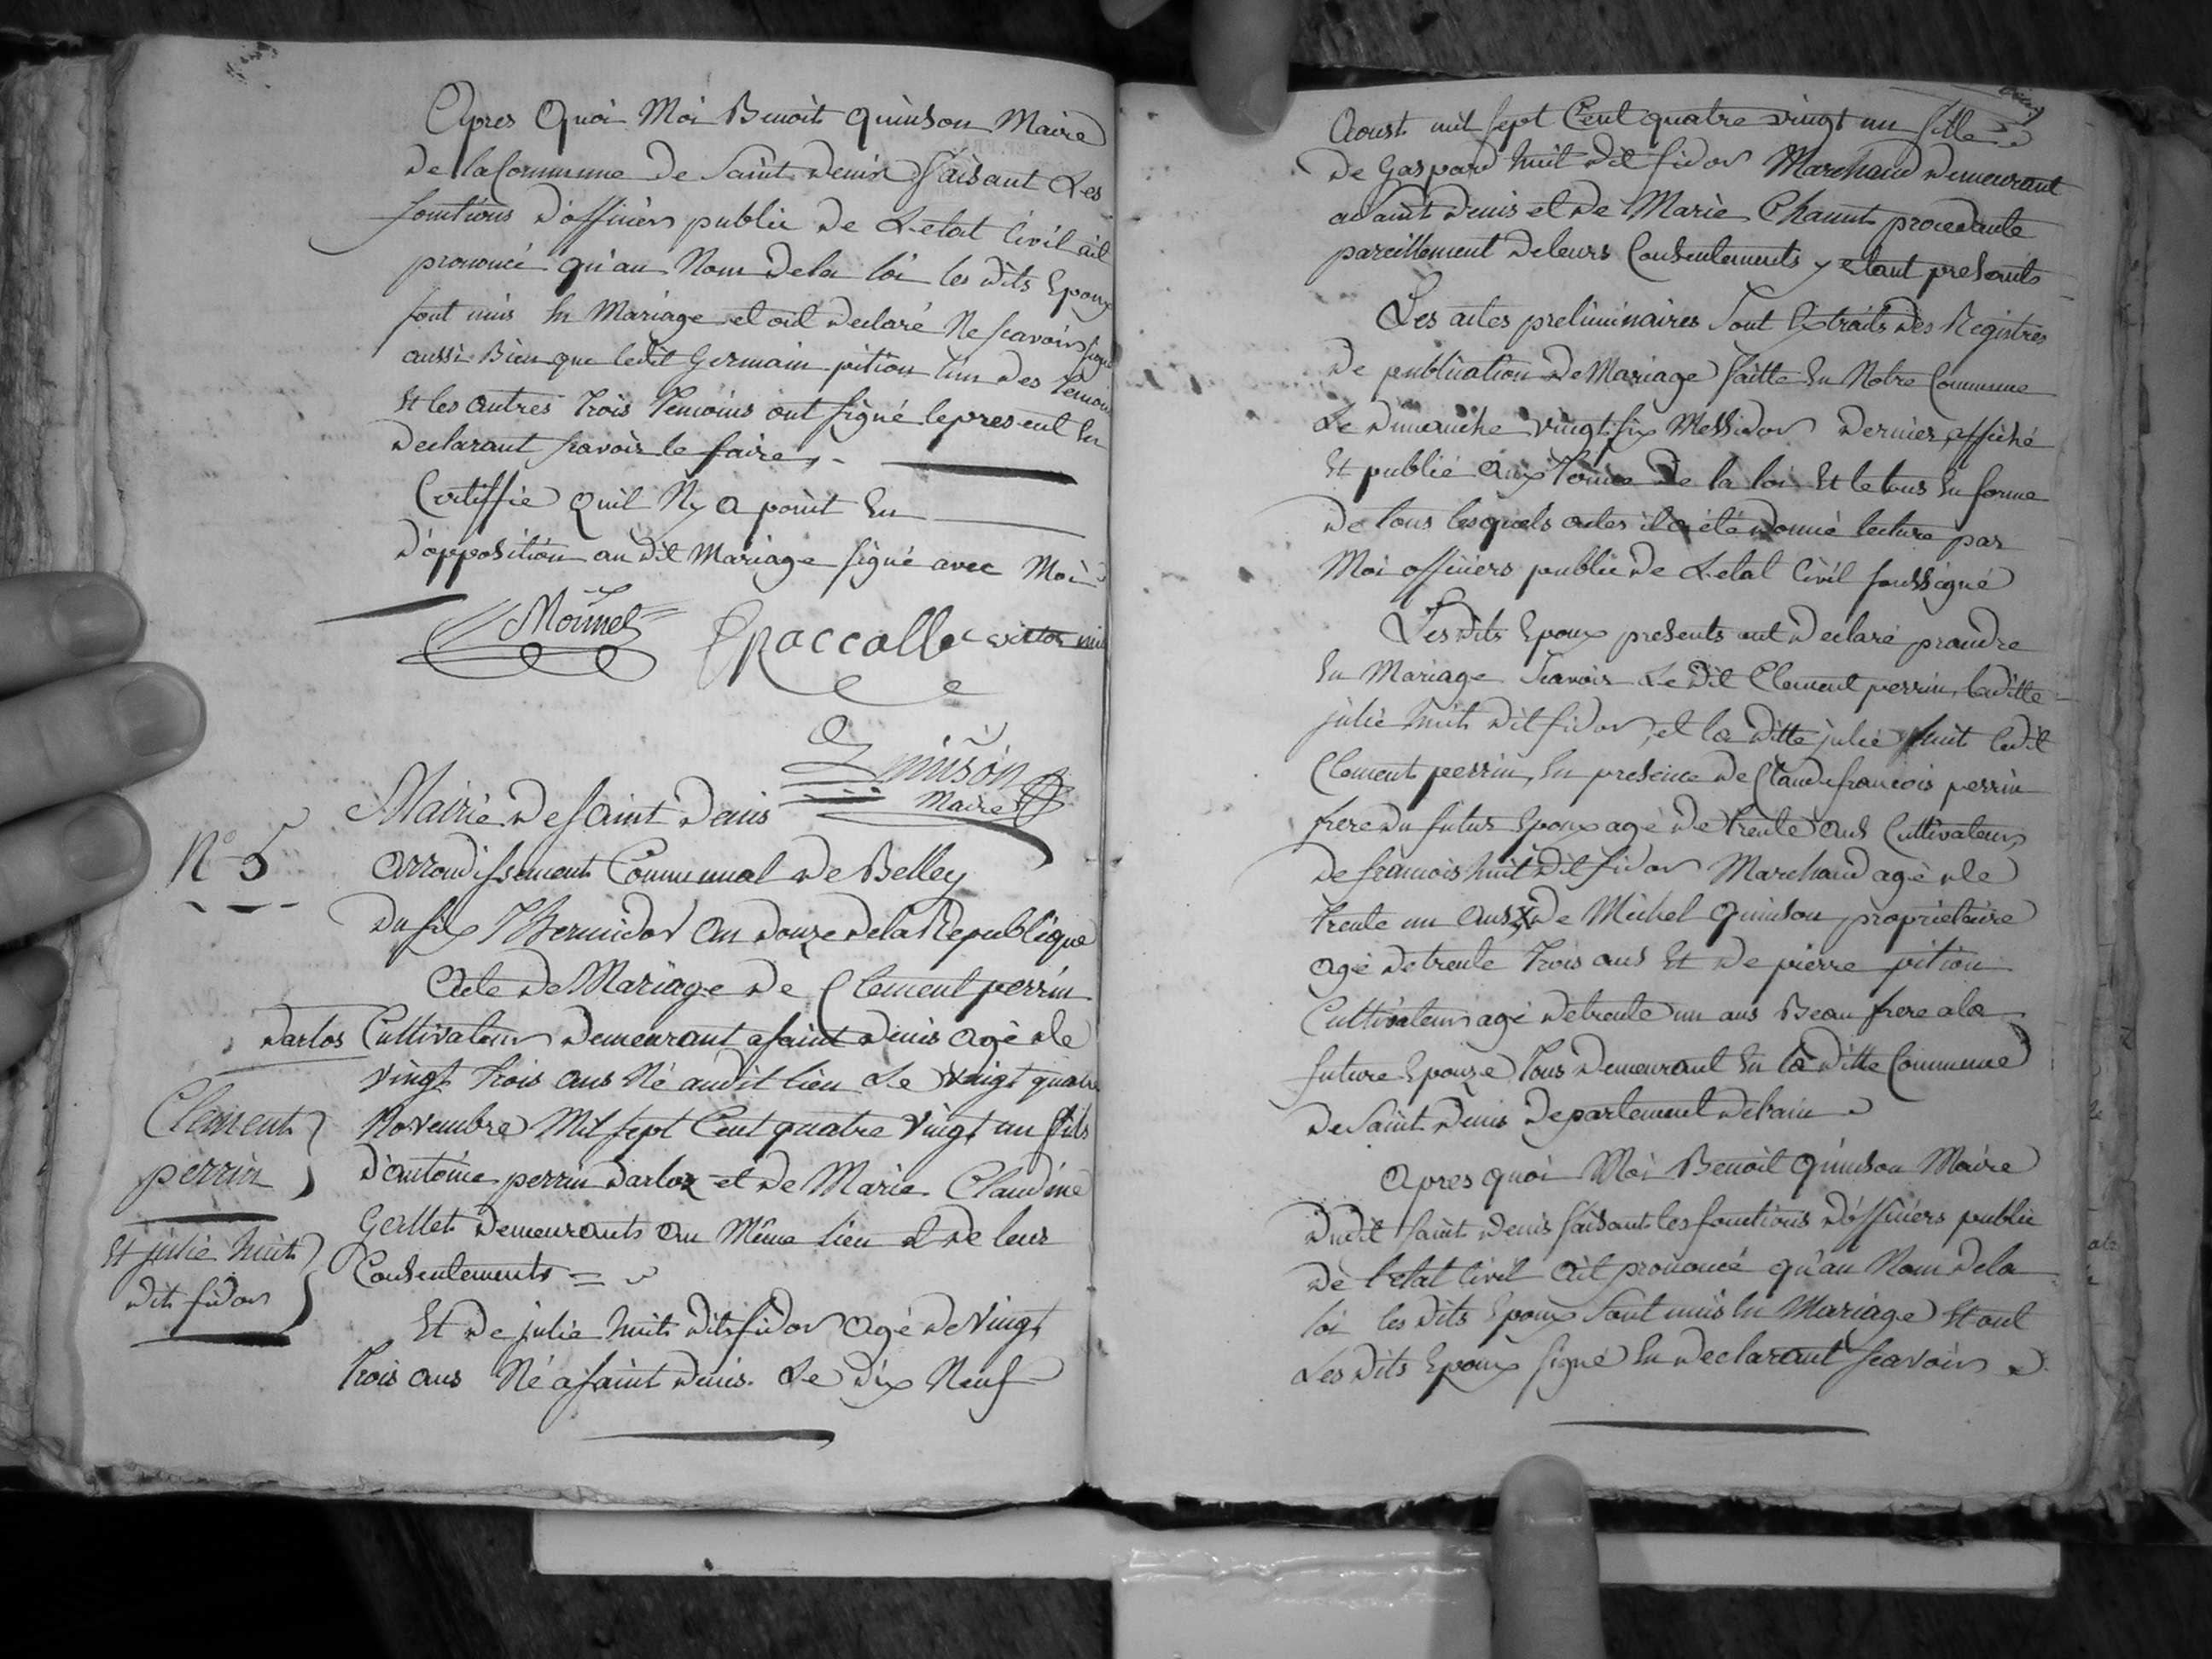 Apres Quoi Moi Benoit Quinson Maire
de la Commune de Saint denis faisant Les
fonctions d'officiers public de L'etat Civil ail
prononcé qu'au Nom de la loi les dits Epoux
sont unis En Mariage et oit declaré Ne scavoir signé
aussi Bien que ledit Germain pition l'un des Temoins
Et les autres trois Temoins ont signé le present En
declarant scavoir le faire
Certiffie Quil N'y a point Eu
d'opposition au dit Mariage signé avec Moi
Mornet
Paccallet
Quinson
Maire
Mairie de Saint Denis
N° 5
arrondissement Communal de Belley
du six Thermidor an douze de la Republique
Acte de Mariage de Clement perrin
darlos Cultivateur demeurant a saint denis agé de
vingt trois ans Né au dit lieu Le vingt quatre
Novembre Mil sept Cent quatre vingt un fils
d'antoine perrin darloz et de Marie Claudine
demeurants au Même lieu et de leur
Consentements
Clement
perrin
Et julie huit
dit fidor
Et de julie huit dit fidor agé de vingt
trois ans Né a saint denis Le dix Neuf
Aoust mil sept Cent quatre vingt un fille
de Gaspard huit dit fidor Marchand demeurant
a saint denis et de Marie procedante
pareillement de leurs Consentements y etant presents
Les actes preliminaires sont Extraits des Registres
de publication de Mariage faitte En Notre Commune
Le dimanche vingt six Messidor dernier affiché
Et publié aux terme de la loi Et le tous En forme
de tous lesquels actes il a été donné lecture par
Moi officiers public de L'etat Civil soussigné
Les dits Epoux presents ont declaré prandre
En Mariage scavoir Le dit Clement perrin, laditte
julie huit dit fidor, et la ditte julie huit ledit
Clement perrin, En presence de Claude francois perrin
frere du futur Epoux agé de trente ans Cultivateur
de francois huit dit fidor Marchand agé de
trente un ans de Michel Quinson proprietaire
agé de trente trois ans Et de pierre pition
Cultivateur agé de trente un ans Beau frere a la
future Epouze Tous demeurant En la ditte Commune
de Saint denis departement de l'ain
Apres quoi Moi Benoit Quinson Maire
dudit Saint denis faisant les fonctions d'officiers public
de l'etat Civil ait prononcé qu'au Nom de la
loi les dits Epoux sont unis En Mariage Et ont
Les dits Epoux signé En declarant scavoir